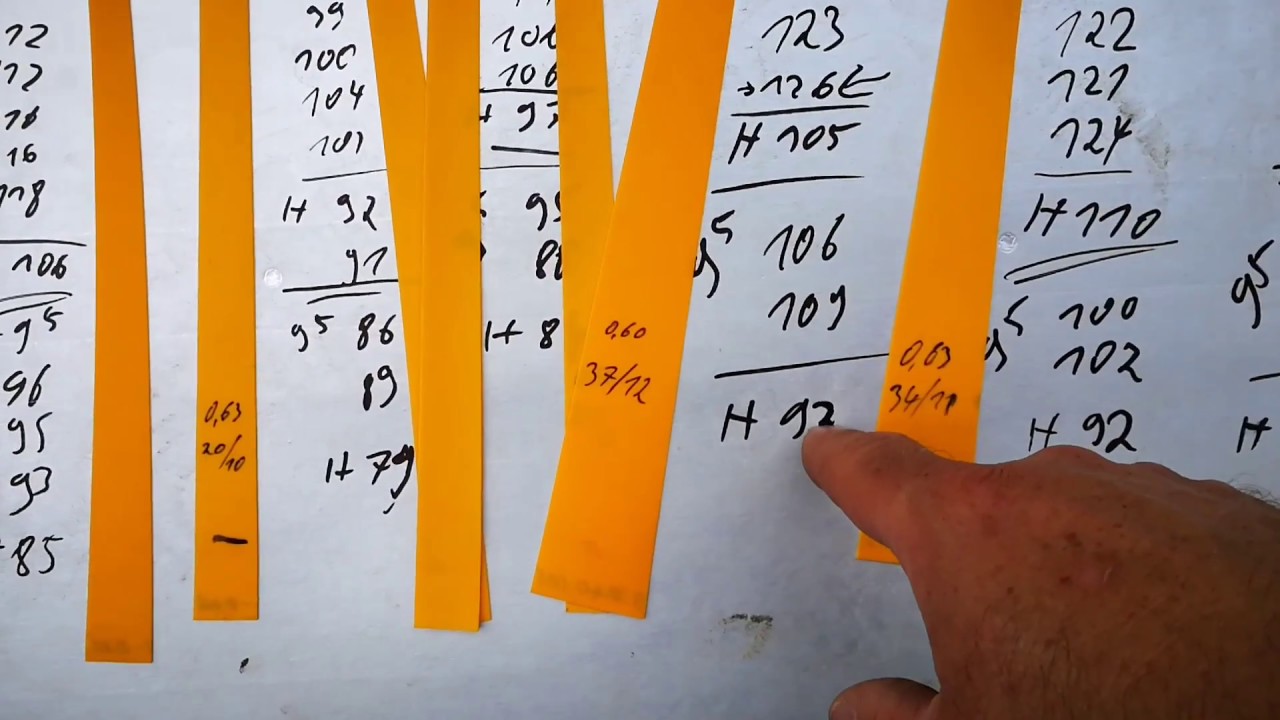 12
12
16
16
118
106
9⁵
96
95
93
85
0,63
20/10
99
100
104
101
H 92
91
9⁵ 86
89
H 79
106
H 8
0,60
37/12
123
→126←
H 105
9⁵ 106
109
H 92
0,63
34/11
122
121
124
H 110
9⁵ 100
102
H 92
9⁵
H